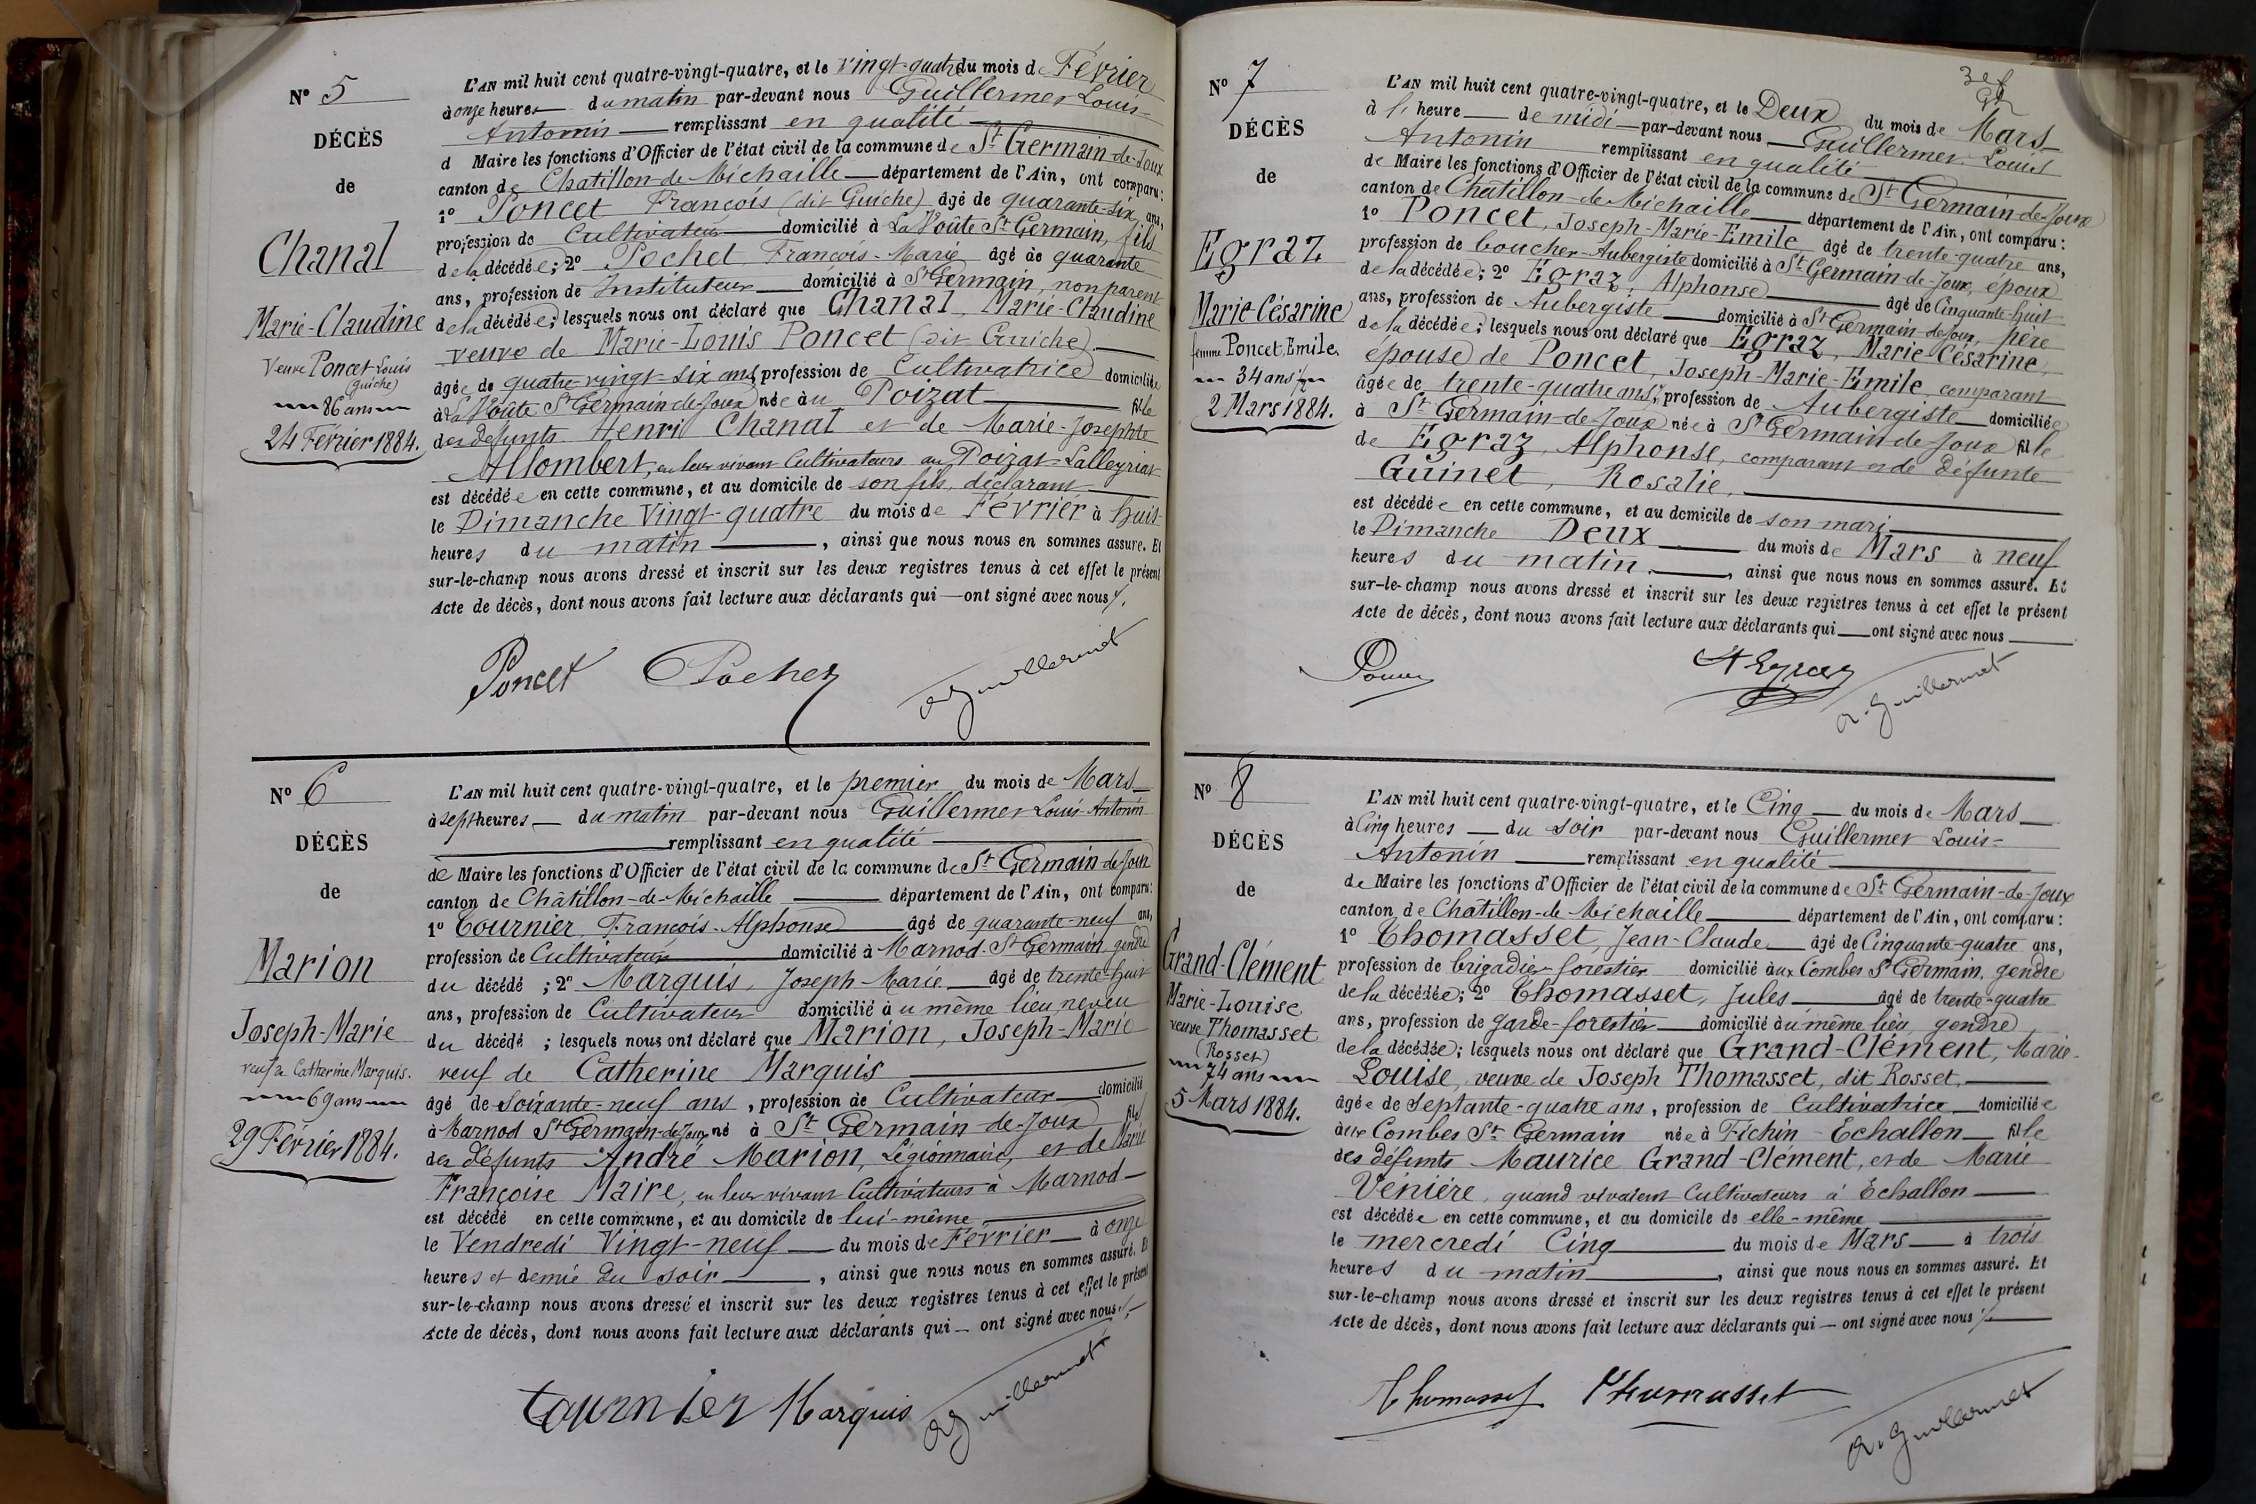 N° 5
DÉCÈS
de
Chanal
Marie-Claudine
Veuve Poncet Louis
(guiche)
86 ans
24 Février 1884.
L'AN mil huit cent quatre-vingt-quatre, et le vingt-quatre du mois de Février
à onze heures du matin par-devant nous Guillermet Louis-
Antonin remplissant en qualité
d Maire les fonctions d'Officier de l'état civil de la commune de St Germain-de-Joux
canton de Chatillon-de-Michaille département de l'Ain, ont comparu:
1° Poncet François (dit Guiche) âgé de quarante-six ans,
profession de Cultivateur domicilié à La Voûte St Germain, fils
de la décédée; 2° Pochet François-Marie âgé de quarante
ans, profession de Instituteur domicilié à St Germain, non parent
de la décédée; lesquels nous ont déclaré que Chanal, Marie-Claudine
veuve de Marie-Louis Poncet (dit Guiche)
âgée de quatre-vingt-six ans, profession de Cultivatrice domiciliée
à La Voûte St Germain de Joux née au Poizat fille
des défunts Henri Chanal et de Marie-Josephte
Allombert, en leur vivant Cultivateurs au Poizat-Lalleyriat
est décédée en cette commune, et au domicile de son fils, déclarant
le Dimanche Vingt-quatre du mois de Février à huit
heures du matin, ainsi que nous nous en sommes assuré. Et
sur-le-champ nous avons dressé et inscrit sur les deux registres tenus à cet effet le présent
Acte de décès, dont nous avons fait lecture aux déclarants qui ont signé avec nous.
Poncet Pochet A Guillermet
N° 6
DÉCÈS
de
Marion
Joseph-Marie
veuf de Catherine Marquis.
69 ans
29 Février 1884.
L'AN mil huit cent quatre-vingt-quatre, et le premier du mois de Mars
à sept heures du matin par-devant nous Guillermet Louis-Antonin
remplissant en qualité
de Maire les fonctions d'Officier de l'état civil de la commune de St Germain-de-Joux
canton de Châtillon-de-Michaille département de l'Ain, ont comparu:
1° Tournier, François-Alphonse âgé de quarante-neuf ans,
profession de Cultivateur domicilié à Marnod-St Germain, gendre
du décédé; 2° Marquis, Joseph-Marie âgé de trente-huit
ans, profession de Cultivateur domicilié au même lieu, neveu
du décédé; lesquels nous ont déclaré que Marion, Joseph-Marie
veuf de Catherine Marquis
âgé de Soixante-neuf ans, profession de Cultivateur domicilié
à Marnod St Germain-de-Joux, né à St Germain-de-Joux fils
des défunts André Marion, Légionnaire, et de Marie
Françoise Maire, en leur vivant Cultivateurs à Marnod
est décédé en cette commune, et au domicile de lui-même
le Vendredi Vingt-neuf du mois de Février à onze
heures et demie du soir, ainsi que nous nous en sommes assuré. Et
sur-le-champ nous avons dressé et inscrit sur les deux registres tenus à cet effet le présent
Acte de décès, dont nous avons fait lecture aux déclarants qui ont signé avec nous.
Tournier Marquis A Guillermet
N° 7
DÉCÈS
de
Egraz
Marie-Césarine
femme Poncet Emile
34 ans ½
2 Mars 1884.
3e f
L'AN mil huit cent quatre-vingt-quatre, et le Deux du mois de Mars
à l' heure de midi par-devant nous Guillermet Louis
Antonin remplissant en qualité
de Maire les fonctions d'Officier de l'état civil de la commune de St Germain-de-Joux
canton de Châtillon-de-Michaille département de l'Ain, ont comparu:
1° Poncet, Joseph-Marie-Emile âgé de trente-quatre ans,
profession de boucher-Aubergiste domicilié à St Germain-de-Joux, époux
de la décédée; 2° Egraz, Alphonse âgé de Cinquante-huit
ans, profession de Aubergiste domicilié à St Germain-de-Joux, père
de la décédée; lesquels nous ont déclaré que Egraz, Marie-Césarine,
épouse de Poncet, Joseph-Marie-Emile comparant
âgée de trente-quatre ans ½, profession de Aubergiste domiciliée
à St Germain-de-Joux née à St Germain de Joux fille
de Egraz, Alphonse, comparant et de défunte
Guinet, Rosalie,
est décédée en cette commune, et au domicile de son mari
le Dimanche Deux du mois de Mars à neuf
heures du matin, ainsi que nous nous en sommes assuré. Et
sur-le-champ nous avons dressé et inscrit sur les deux registres tenus à cet effet le présent
Acte de décès, dont nous avons fait lecture aux déclarants qui ont signé avec nous
Poncet A Egraz A. Guillermet
N° 8
DÉCÈS
de
Grand-Clément
Marie-Louise
veuve Thomasset
(Rosset)
74 ans
5 Mars 1884.
L'AN mil huit cent quatre-vingt-quatre, et le Cinq du mois de Mars
à Cinq heures du soir par-devant nous Guillermet Louis-
Antonin remplissant en qualité
de Maire les fonctions d'Officier de l'état civil de la commune de St Germain-de-Joux
canton de Châtillon-de-Michaille département de l'Ain, ont comparu:
1° Thomasset, Jean-Claude âgé de Cinquante-quatre ans,
profession de brigadier forestier domicilié aux Combes St Germain, gendre
de la décédée; 2° Thomasset, Jules âgé de trente-quatre
ans, profession de garde-forestier domicilié au même lieu, gendre
de la décédée; lesquels nous ont déclaré que Grand-Clément, Marie-
Louise, veuve de Joseph Thomasset, dit Rosset,
âgée de Septante-quatre ans, profession de Cultivatrice domiciliée
aux Combes St Germain née à Fichin-Echallon fille
des défunts Maurice Grand-Clément, et de Marie
Venière, quand vivaient Cultivateurs à Echallon
est décédée en cette commune, et au domicile de elle-même
le mercredi Cinq du mois de Mars à trois
heures du matin, ainsi que nous nous en sommes assuré. Et
sur-le-champ nous avons dressé et inscrit sur les deux registres tenus à cet effet le présent
Acte de décès, dont nous avons fait lecture aux déclarants qui ont signé avec nous
Thomasset Thomasset A. Guillermet